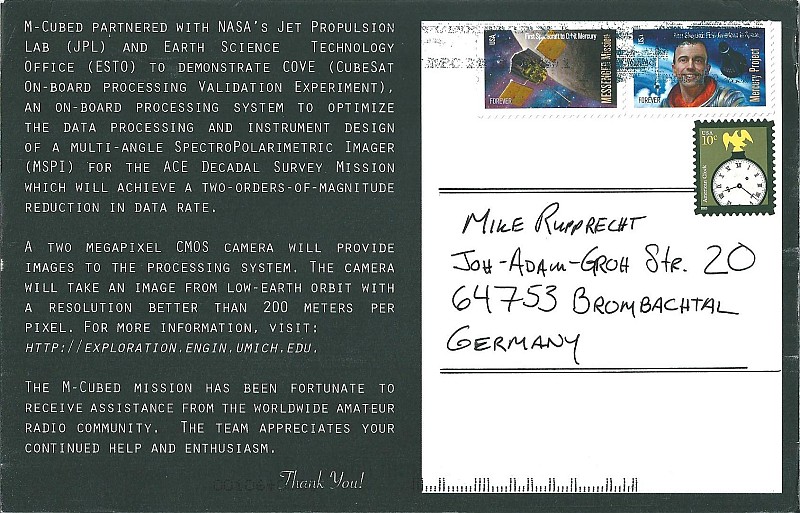 M-Cubed partnered with NASA's Jet Propulsion
Lab (JPL) and Earth Science Technology
Office (ESTO) to demonstrate COVE (CubeSat
On-board processing Validation Experiment),
an on-board processing system to optimize
the data processing and instrument design
of a multi-angle SpectroPolarimetric Imager
(MSPI) for the ACE Decadal Survey Mission
which will achieve a two-orders-of-magnitude
reduction in data rate.
A two megapixel CMOS camera will provide
images to the processing system. The camera
will take an image from low-earth orbit with
a resolution better than 200 meters per
pixel. For more information, visit:
http://exploration.engin.umich.edu.
The M-Cubed mission has been fortunate to
receive assistance from the worldwide amateur
radio community. The team appreciates your
continued help and enthusiasm.
Thank You!
USA
First Spacecraft to Orbit Mercury
MESSENGER Mission
FOREVER
USA
Mercury Project
FOREVER
USA
10c
American Clock
Mike Rupprecht
Joh-Adam-Groh Str. 20
64753 Brombachtal
Germany